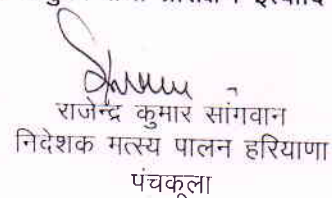 राजेन्द्र कुमार सांगवान
निदेशक मत्स्य पालन हरियाणा
पंचकूला